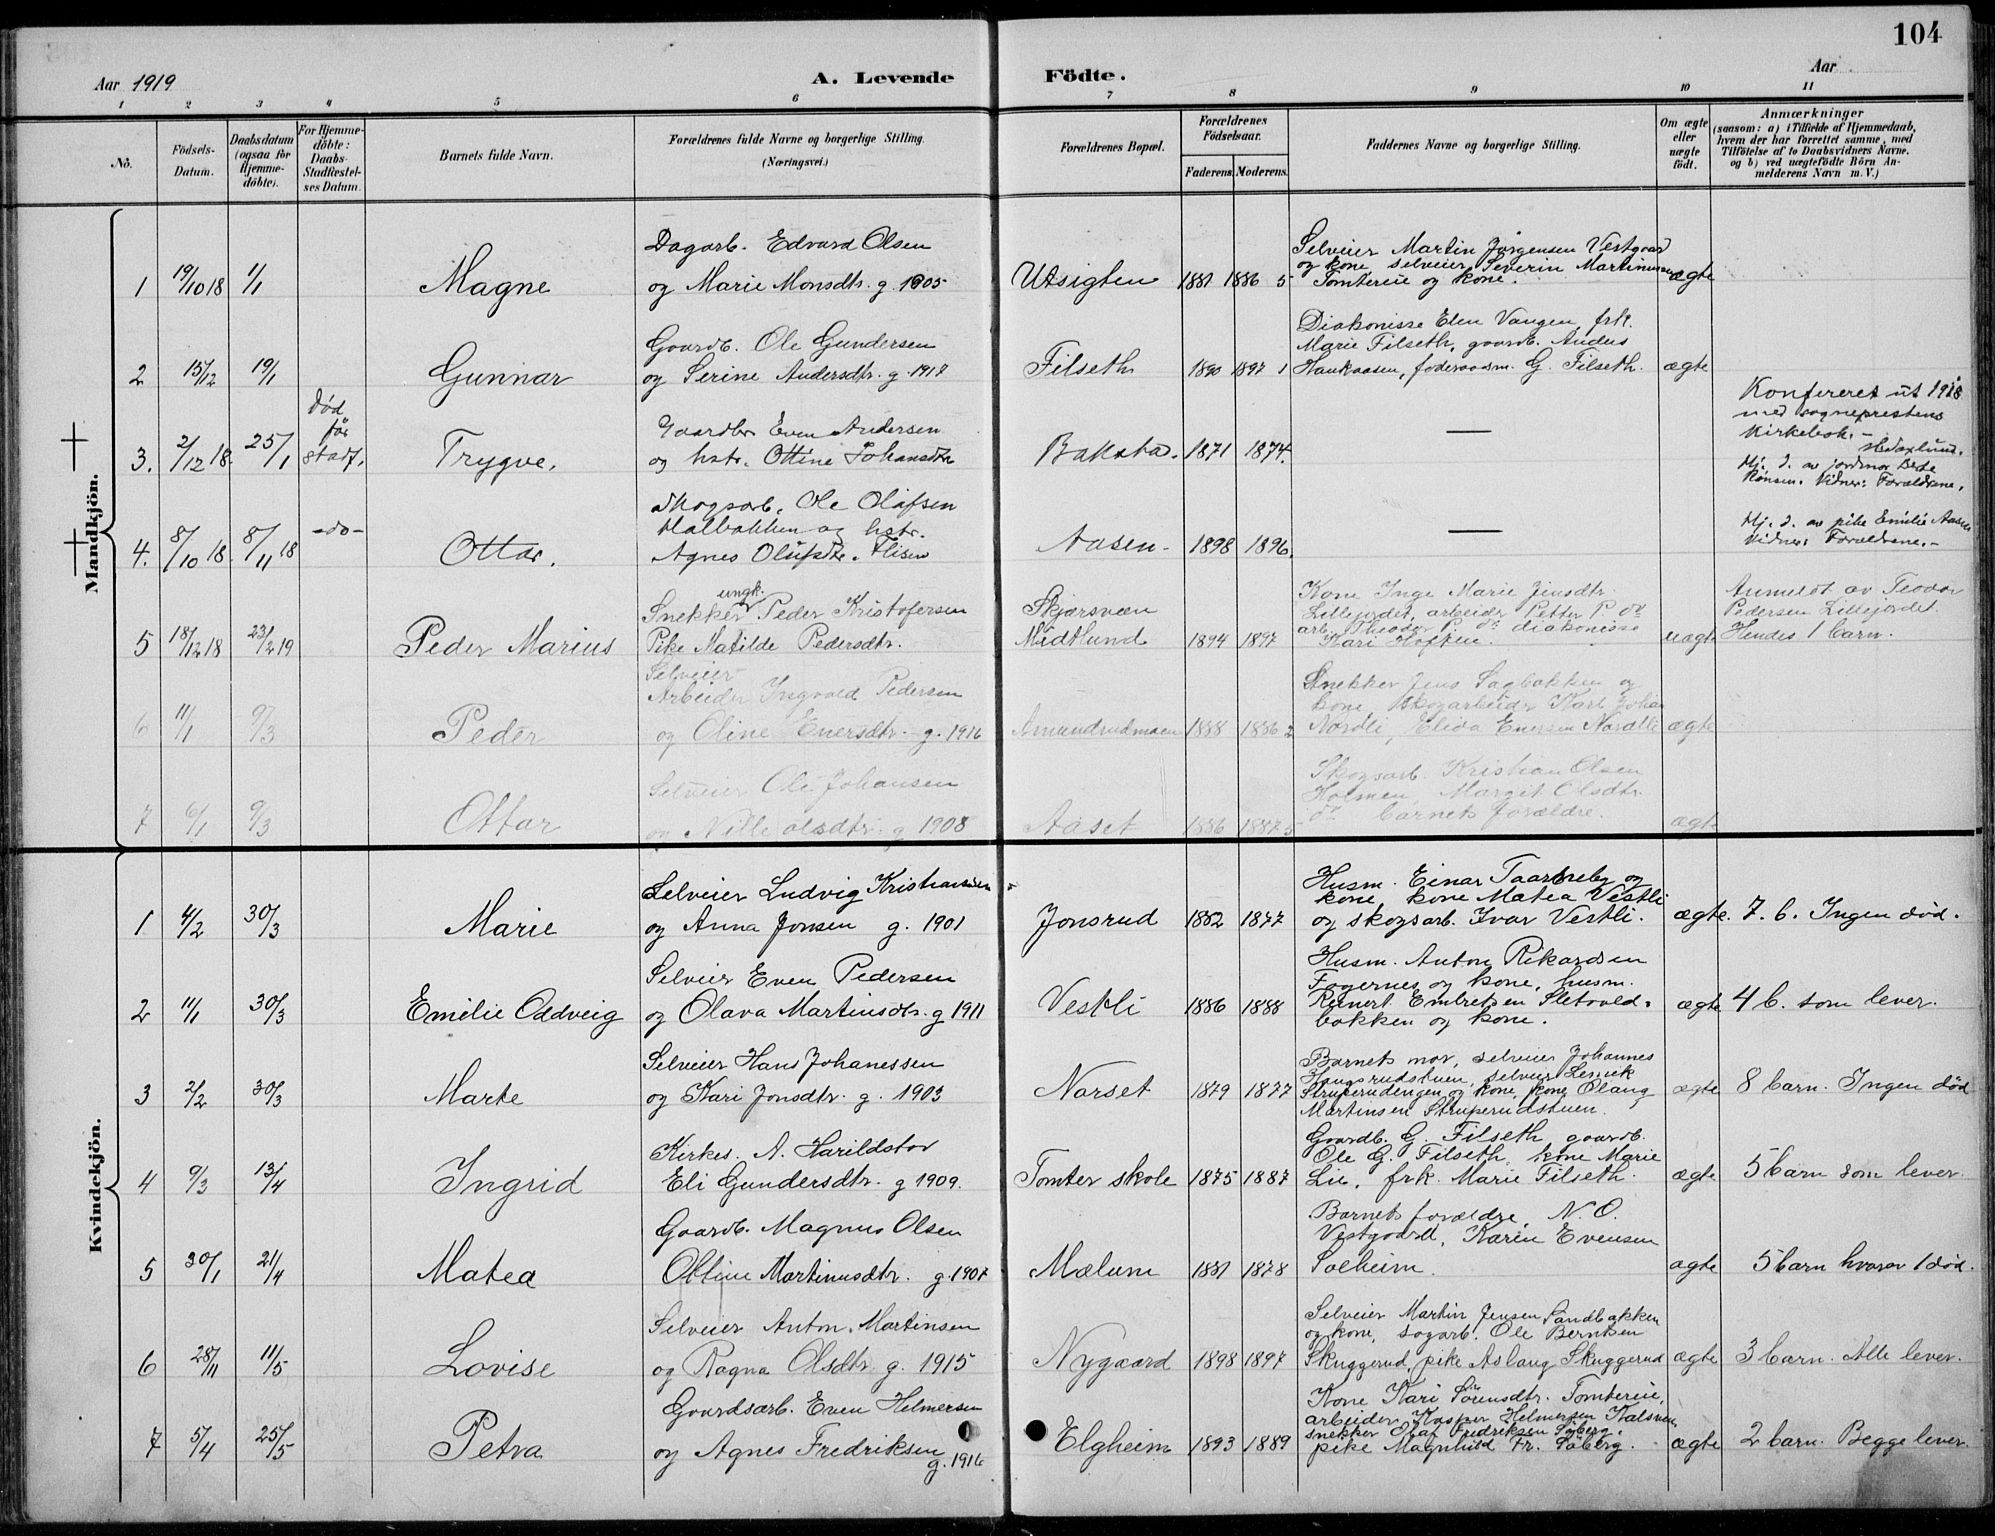 104
Aar 1919
A. Levende
Födte.
Aar
1 2 3 4 5 6 7 8 9 10 11
Nö.
Födsels-
Datum.
Daabsdatum
(ogsaa for
Hjemme-
döbte).
For Hjemme-
döbte:
Daabs-
Stadfæstel-
ses Datum.
Barnets fulde Navn.
Forældrenes fulde Navne og borgerlige Stilling.
(Næringsvei.)
Forældrenes Bopæl.
Forældrenes
Födselsaar.
Faderens. Moderens.
Faddernes Navne og borgerlige Stilling.
Om ægte
eller
uægte
født.
Anmærkninger
(saasom: a) i Tilfælde af Hjemmedaab,
hvem der har forrettet samme, med
Tilföielse af to Daabsvidners Navne.
og b) ved uægtefödte Börn An-
melderens Navn m. V.)
Mandkjön.
1 19/10 18 1/1 Magne
Dagarb. Edvard Olsen
og Marie Monsdtr. g. 1905
Utsigten 1881 1886 5
Selveier Martin Jørgensen Vestgaard
og kone selveier Severin Martinussen
Tomtereie og kone.
ægte
2 15/12 19/1 Gunnar
Gaardb. Ole Gundersen
og Serine Andersdtr. g. 1917
Filseth 1890 1897 1
Diakonisse Elen Vangen, frk.
Marie Filseth, gaardb. Anders
Haukaasen, føderaadsm. G. Filseth.
ægte
3. 2/12 18. 25/1
død
før
stadf.
Trygve.
Gaardbr. Even Andersen
og hstr. Ottine Johansdtr
Bakstad. 1871 1874.
—
Konfereret ut 1918
med sogneprestens
Kirkebok. –
Hj. d. av jordmor Berte
Rønsen. Vidner: Forældrene.
4. 8/10 18. 8/11 18 -do- Ottar.
Skogsarb. Ole Olafsen
Halbakken og hstr.
Agnes Olufsdtr. Flisen
Aasen 1898 1896.
—
Hj. d. av pike Emilie Aasen
Vidner: Forældrene. –
5 18/12 18 23/2 19 Peder Marius
Snekker ungk. Peder Kristofersen
Pike Matilde Pedersdtr.
Skjærsvæen
Midtlund 1894 1897
Kone Inge Marie Jensdtr
Lillejordet, arbeider Petter P. do
arb. Theodor P. do diakonisse
Kari Hoften.
uægte
Anmeldt av Teodor
Pedersen Lillejordet.
Hendes 1 barn.
6 11/1 9/3 Peder
Selveier
Arbeider Ingvald Pedersen
og Oline Enersdtr. g. 1916
Amundrudmoen 1888 1886 2
Snekker Jens Sagbakken og
kone, skogarbeider Karl Johan
Nordli, Elida Enersen Nordli
ægte
7 6/1 9/3 Ottar
Selveier Ole Johansen
og Nille Olsdtr. g 1908
Aaset 1886 1887 5
Skogsarb. Kristian Olsen
Holmen, Margit Olsdtr.
do barnets forældre.
ægte
Kvindekjön.
1 4/2 30/3 Marie
Selveier Ludvig Kristiansen
og Anna Jonsen g. 1901
Jonsrud 1882 1877
Husm. Einar Taarneby og
kone, kone Matea Vestli
og skogsarb. Ivar Vestli.
ægte. 7. b. Ingen død.
2 11/1 30/3 Emilie Oddveig
Selveier Even Pedersen
og Olava Martinsdtr. g 1911
Vestli 1886 1888
Husm. Anton Rikardsen
Fagernes og kone, husm.
Reinert Embretsen Sletvold-
bakken og kone.
ægte 4 b. som lever.
3 2/2 30/3 Marte
Selveier Hans Johanessen
og Kari Jonsdtr. g. 1903
Norset 1879 1877
Barnets mor, selveier Johannes
Haugsrudstuen, selveier
Struperudengen og kone, kone Olaug
Martinsen Struperudstuen.
ægte 8 barn. Ingen død
4 9/3 13/4 Ingrid
Kirkes. A. Harildstad
Eli Gundersdtr. g 1909.
Tomter skole 1875 1887
Gaardb. G. Filseth gaardb.
Ole G. Filseth, kone Marie
Lie, frk. Marie Filseth.
ægte 5 barn som lever.
5 30/1 21/4 Matea
Gaardb. Magnus Olsen
Ottine Martinusdtr. g. 1907
Mælum 1881 1878
Barnets forældre, N. O.
Vestgaard, Karen Evensen
Solheim.
ægte 5 barn hvorav 1 død.
6 28/11 11/5 Lovise
Selveier Anton Martinsen
og Ragna Olsdtr. g. 1915
Nygaard 1898 1897
Selveier Martin Jensen Sandbakken
og kone, sagarb. Ole Berntsen
Skuggerud, pike Aslaug Skuggerud
ægte 3 barn. Alle lever.
7 5/4 25/5 Petra
Gaardsarb. Even Helmersen
og Agnes Fredriksen
g. 1916
Elgheim 1893 1889
Kone Kari Sørensdtr. Tomtereie,
arbeider Kasper Helmersen Kalsveen
snekker Olaf Fredriksen Søberg.
pike Magnhild Fr. Søberg.
ægte 2 barn. Begge lever.